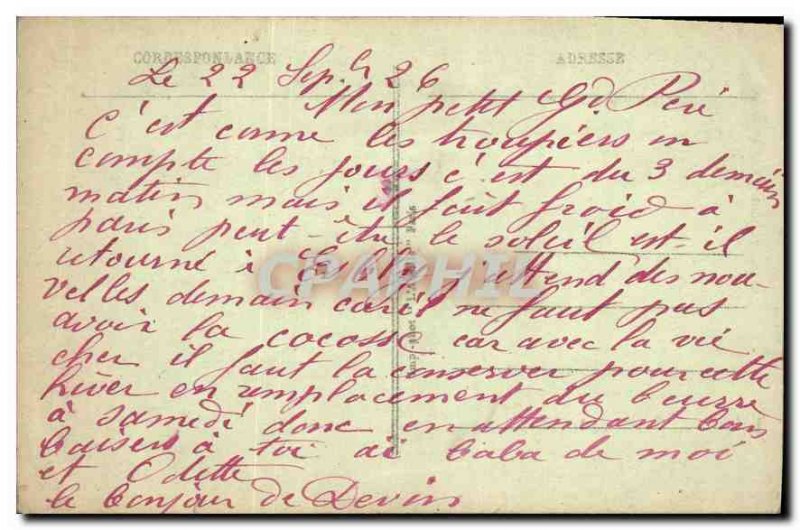 CORRESPONDANCE ADRESSE
Le 22 Sep. 26
Mon petit Gd. Père
c'est come les troupiers on
compte les jours c'est du 3 demain
matin mais il fait froid à
paris peut-être le soleil est-il
retourné à j'attend des nou-
velles demain car il ne faut pas
avoir la cocosse car avec la vie
cher il faut la conserver pour cette
hiver en remplacement du beurre
à samedi donc en attendant bons
baisers à toi ai baba de moi
et Odette
le bonjour de Devin
CPARHIL